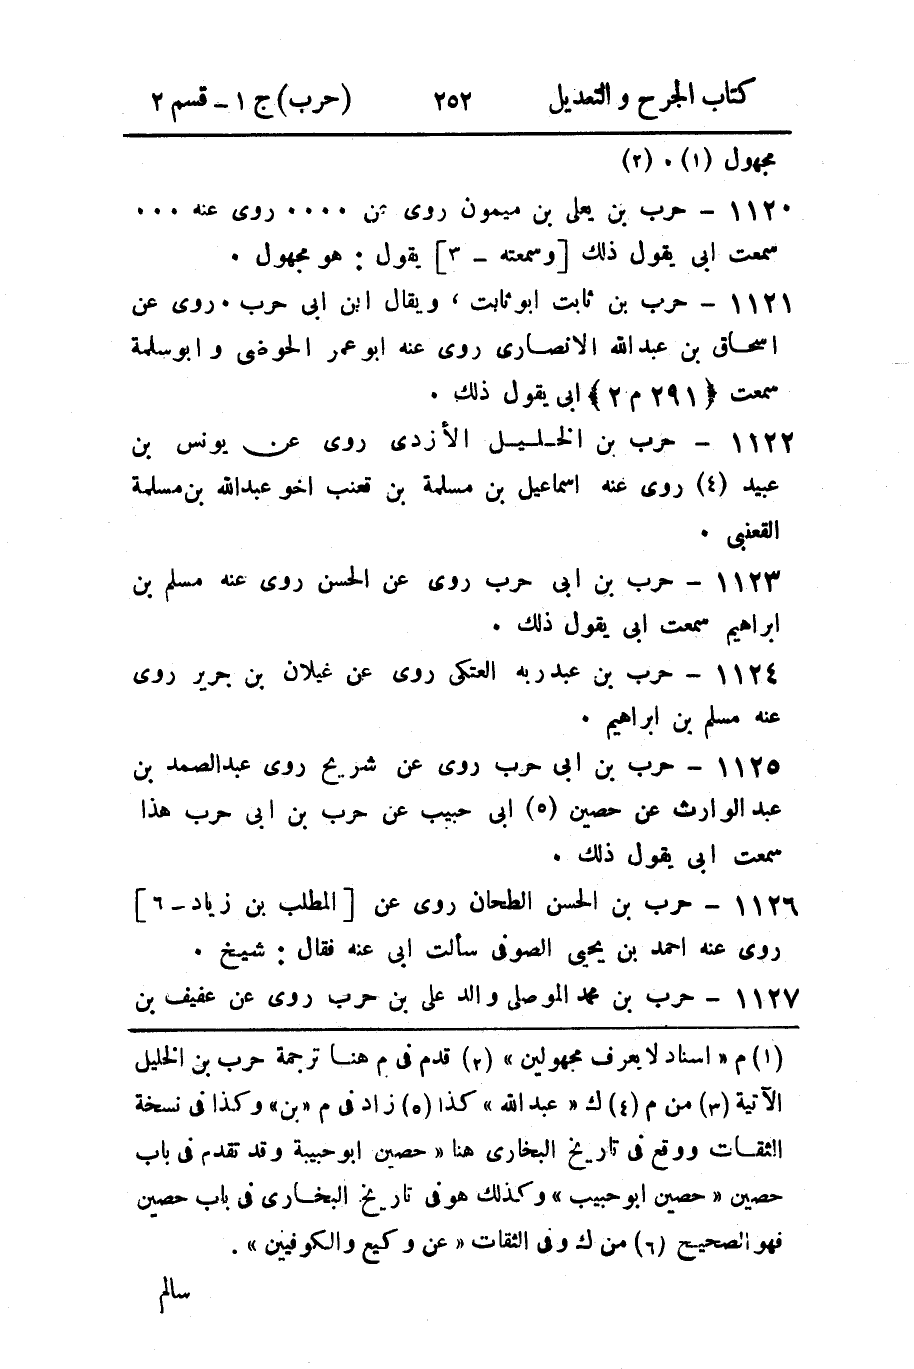 كتاب الجرح و التعديل ٢٥٢ (حرب) ج ١ - قسم ٢
مجهول (١) . (٢)
١١٢٠ - حرب بن يعلى بن ميمون روى عن .... روى عنه ...
سمعت ابى يقول ذلك [وسمعته - ٣] يقول : هو مجهول .
١١٢١ - حرب بن ثابت ابو ثابت ، ويقال ابن ابى حرب . روى عن
اسحاق بن عبدالله الانصارى روى عنه ابو عمر الحوضى و ابو سلمة
سمعت ﴿٢٩١ م ٢﴾ ابى يقول ذلك .
١١٢٢ - حرب بن الخليل الأزدى روى عن يونس بن
عبيد (٤) روى عنه اسماعيل بن مسلمة بن قعنب اخو عبدالله بن مسلمة
القعنبى .
١١٢٣ - حرب بن ابى حرب روى عن الحسن روى عنه مسلم بن
ابراهيم سمعت ابى يقول ذلك .
١١٢٤ - حرب بن عبدربه العتكى روى عن غيلان بن جرير روى
عنه مسلم بن ابراهيم .
١١٢٥ - حرب بن ابى حرب روى عن شريح روى عبدالصمد بن
عبد الوارث عن حصين (٥) ابى حبيب عن حرب بن ابى حرب هذا
سمعت ابى يقول ذلك .
١١٢٦ - حرب بن الحسن الطحان روى عن [المطلب بن زياد - ٦]
روى عنه احمد بن يحيى الصوفى سألت ابى عنه فقال : شيخ .
١١٢٧ - حرب بن محمد الموصلى والد على بن حرب روى عن عفيف بن
(١) م « اسناد لا يعرف مجهولين » (٢) قدم فى م هنا ترجمة حرب بن الخليل
الآتية (٣) من م (٤) ك « عبد الله » كذا (٥) زاد فى م «بن» وكذا فى نسخة
الثقات ووقع فى تاريخ البخارى هنا « حصين ابو حبيبة وقد تقدم فى باب
حصين « حصين ابو حبيب » وكذلك هو فى تاريخ البخارى فى باب حصين
فهو الصحيح (٦) من ك وفى الثقات « عن وكيع والكوفيين » .
سالم